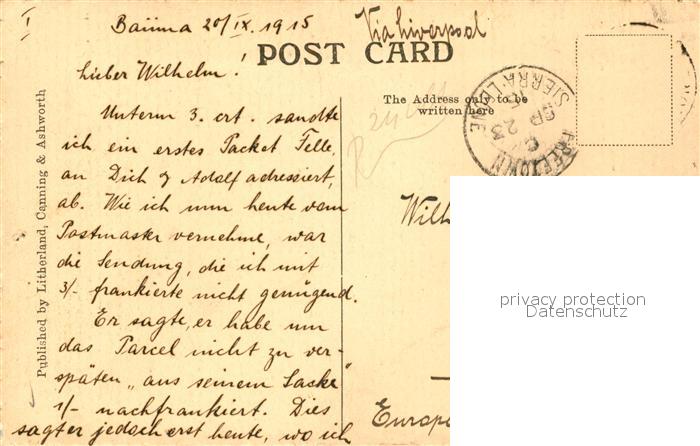 I
Baiima 20/IX. 1915
Via Liverpool
POST CARD
Lieber Wilhelm!
The Address only to be
written here
FREETOWN
SIERRA LEONE
SP 23
Unterm 3. crt. sandte
ich ein erstes Packet Felle,
an Dich & Adolf adressiert,
ab. Wie ich nun heute vom
Postmaster vernehme, war
die Sendung, die ich mit
3/- frankierte nicht genügend.
Er sagte, er habe um
das Parcel nicht zu ver-
späten „aus seinem Sacke"
1/- nachfrankiert. Dies
sagt er jedoch erst heute, wo ich
Wilh
Europe
Published by Litherland, Canning & Ashworth
privacy protection
Datenschutz